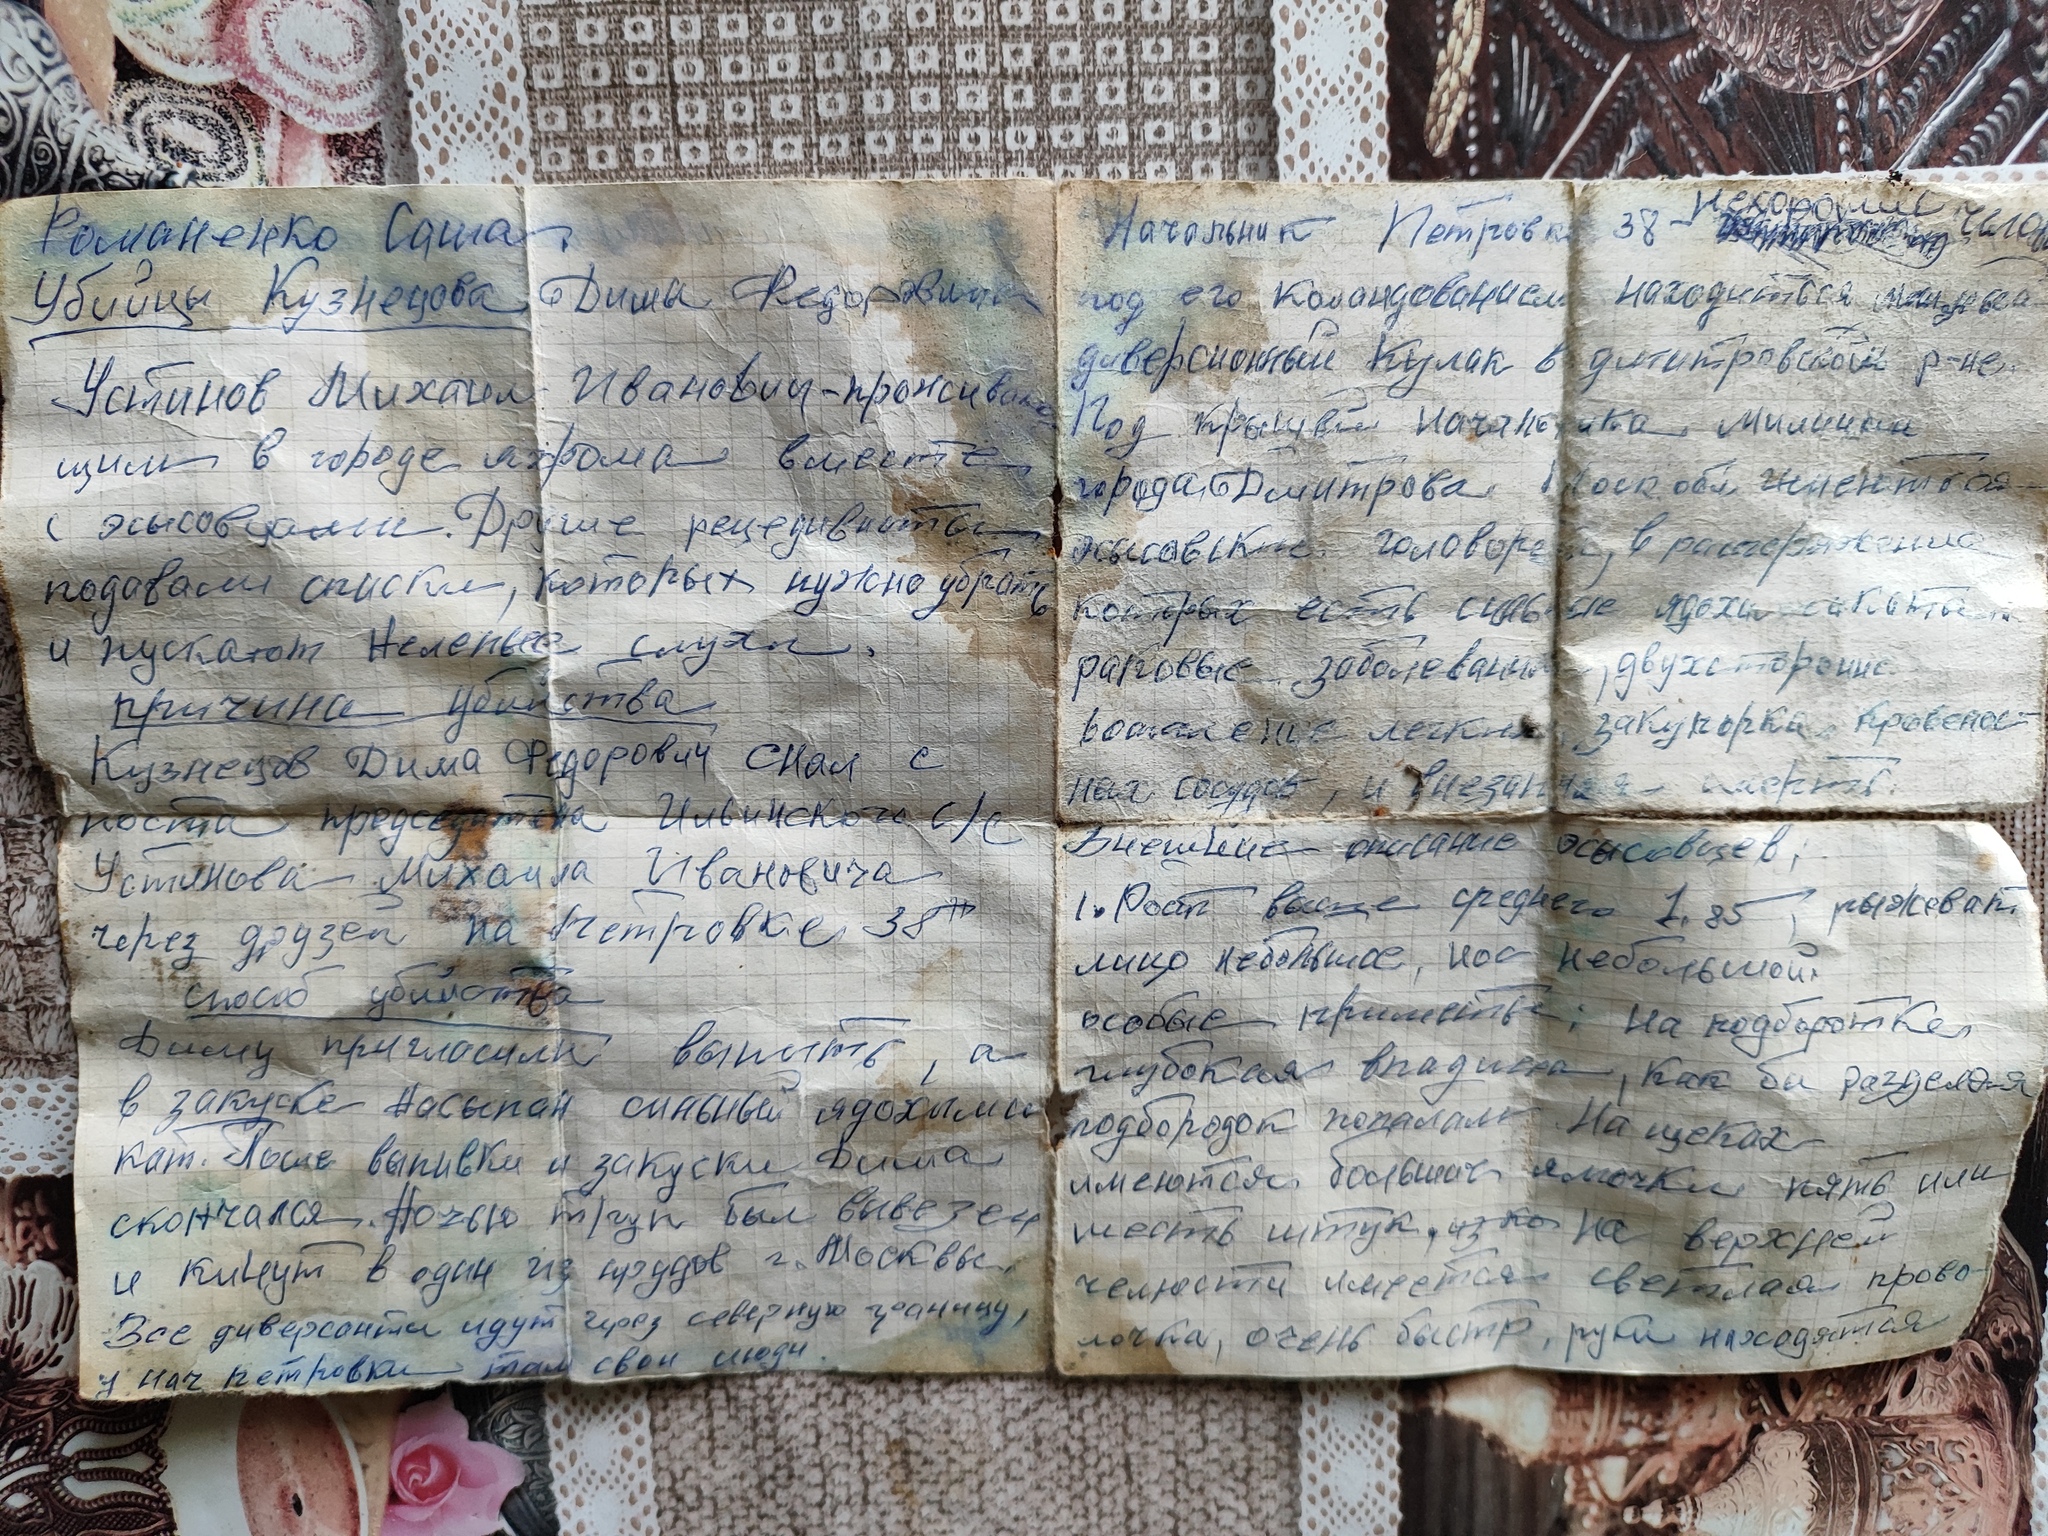 Романенко Саша
Убийцы Кузнецова Димы Федоровича
Устинов Михаил Иванович - прожива
щим в городе яхрома вместе
с эсысовцами. Другие рецедивисты
подавали списки, которых нужно убрать
и пускают нелепые слухи.
причина убийства
Кузнецов Дима Федорович снял с
поста председателя Ильинского с/с
Устинова Михаила Ивановича
через друзей на Петровке 38"
способ убийства
Диму пригласили выпить, а
в закуске насыпан сильный ядохими
кат. После выпивки и закуски Дима
скончался. Ночью труп был вывезен
и кинут в один из прудов г. Москвы.
Все диверсанты идут через северную границу,
у нач петровки там свои люди.
Начальник Петровки 38 - нехороший челов
под его командованием находиться
диверсионный Кулак в дмитровском р-не.
Под крышей начальника милиции
города Дмитрова Моск обл.
эсысовские головорезы, в распоряжении
которых есть сильные ядохимикаты
раковые заболевания, двухсторонне
воспаление легких, закупорка кровенос
ных сосудов, и внезапная смерть.
Внешние описание эсысовцев;
1. Рост выше среднего 1,85, рыжеват
лицо небольшое, нос небольшой.
особые приметы; на подбородке
глубокая впадина, как бы разделяя
подбородок пополам. На щеках
имеются большие ямочки пять или
шесть штук, на верхней
челюсти имеется светлая прово-
лочка, очень быстр, руки находятся